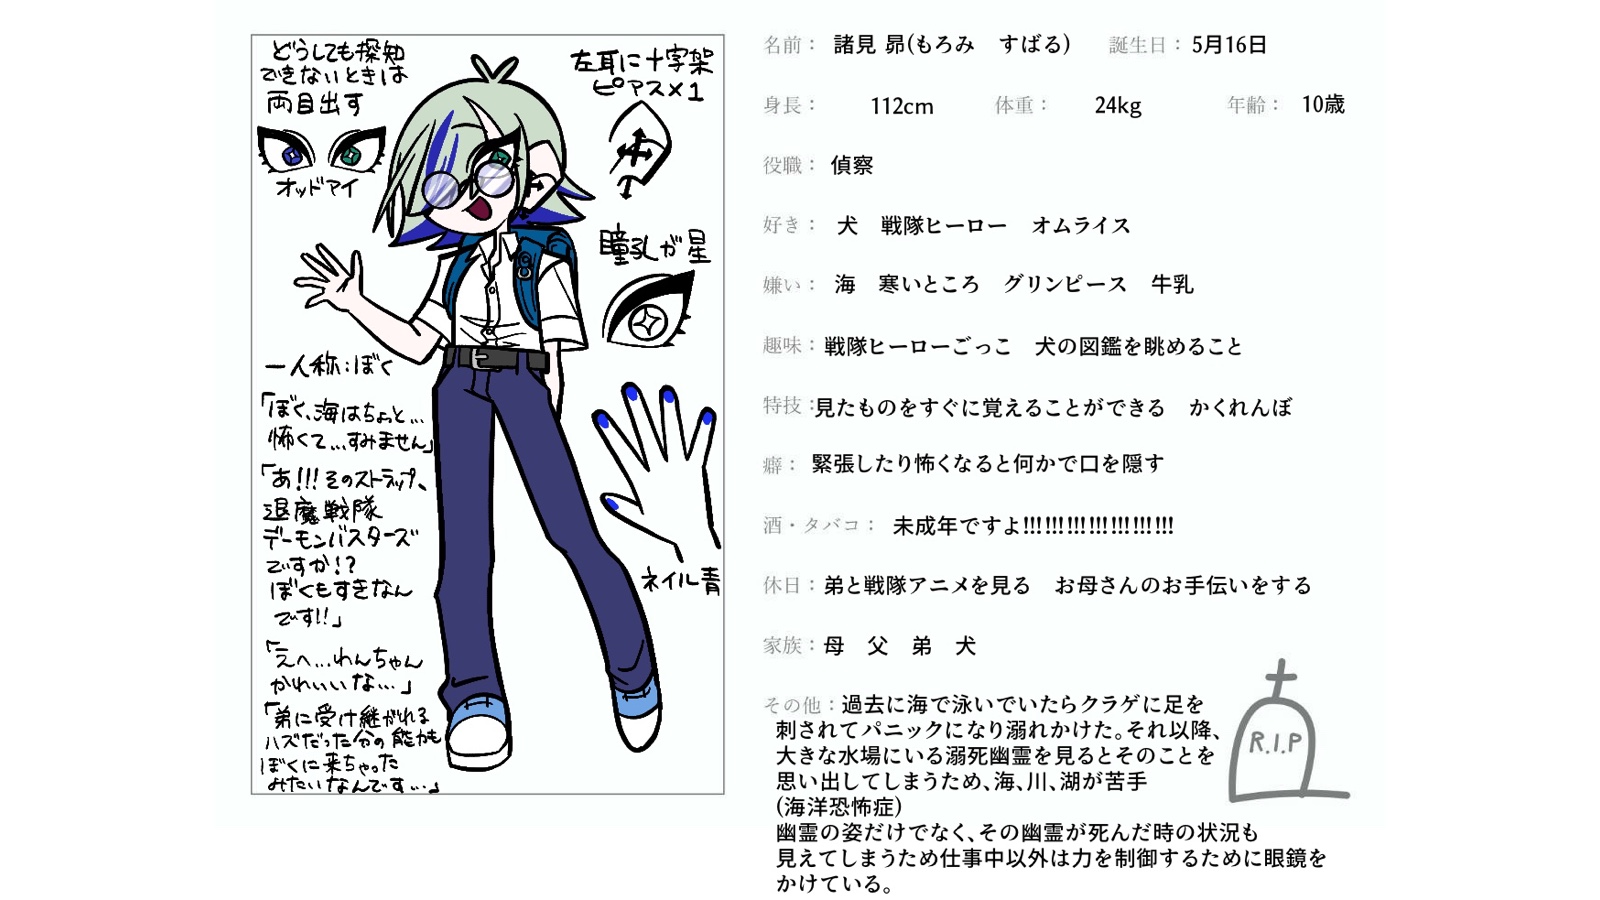 どうしても探知
できないときは
両目出す
オッドアイ
左耳に十字架
ピアス×1
瞳孔が星
ネイル青
一人称:ぼく
「ぼく、海はちょっと…
怖くて…すみません」
「あ!!!そのストラップ、
退魔戦隊
デーモンバスターズ
ですか!?
ぼくもすきなん
です!!」
「えへ…わんちゃん
かわいいな…」
「弟に受け継がれる
ハズだった分の能力も
ぼくに来ちゃった
みたいなんです…」
名前: 諸見 昴(もろみ すばる) 誕生日: 5月16日
身長: 112cm 体重: 24kg 年齢: 10歳
役職: 偵察
好き: 犬 戦隊ヒーロー オムライス
嫌い: 海 寒いところ グリンピース 牛乳
趣味: 戦隊ヒーローごっこ 犬の図鑑を眺めること
特技:見たものをすぐに覚えることができる かくれんぼ
癖: 緊張したり怖くなると何かで口を隠す
酒・タバコ: 未成年ですよ!!!!!!!!!!!!!!!!!!!!!
休日:弟と戦隊アニメを見る お母さんのお手伝いをする
家族:母 父 弟 犬
その他:過去に海で泳いでいたらクラゲに足を
刺されてパニックになり溺れかけた。それ以降、
大きな水場にいる溺死幽霊を見るとそのことを
思い出してしまうため、海、川、湖が苦手
(海洋恐怖症)
幽霊の姿だけでなく、その幽霊が死んだ時の状況も
見えてしまうため仕事中以外は力を制御するために眼鏡を
かけている。
R.I.P